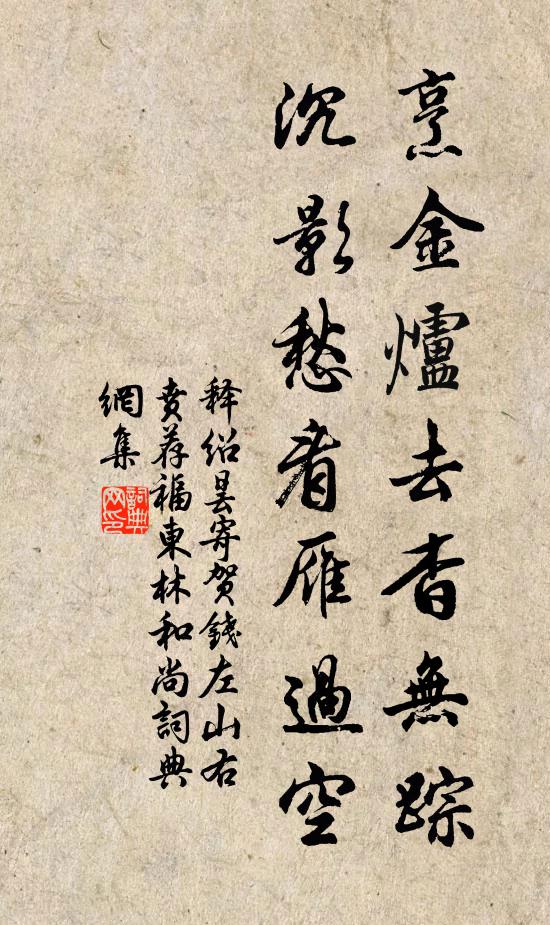 烹金爐去杳無踪
沉影愁看雁過空
释绍昙寄賀錢左山右
賁荐福東林和尚詞典
網集
詞典
网印